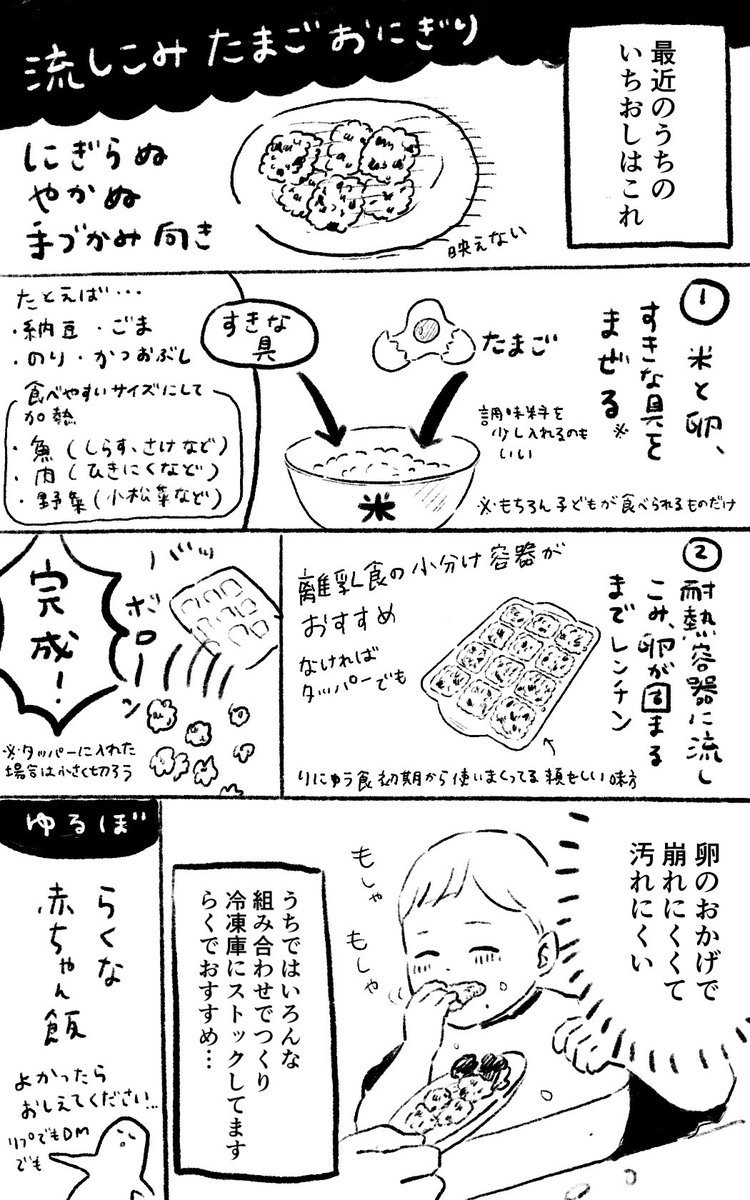 最近のうちの
いちおしはこれ
流しこみ たまごおにぎり
にぎらぬ
やかぬ
手づかみ向き
映えない
① 米と卵、
すきな具を
まぜる※
たまご
調味料を
少し入れるのも
いい
※もちろん子どもが食べられるものだけ
米
すきな
具
たとえば・・・
・納豆・ごま
・のり・かつおぶし
食べやすいサイズにして
加熱
・魚(しらす、さけなど)
・肉(ひきにくなど)
・野菜(小松菜など)
② 耐熱容器に流し
こみ、卵が固まる
までレンチン
離乳食の小分け容器が
おすすめ
なければ
タッパーでも
りにゅう食初期から使いまくってる頼もしい味方
ババッ
ボローン
完成!
※タッパーに入れた
場合は小さく切ろう
卵のおかげで
崩れにくくて
汚れにくい
もしゃ
もしゃ
うちではいろんな
組み合わせでつくり
冷凍庫にストックしてます
らくでおすすめ…
ゆるぼ
らくな
赤ちゃん飯
よかったら
おしえてください…
リプでもDM
でも